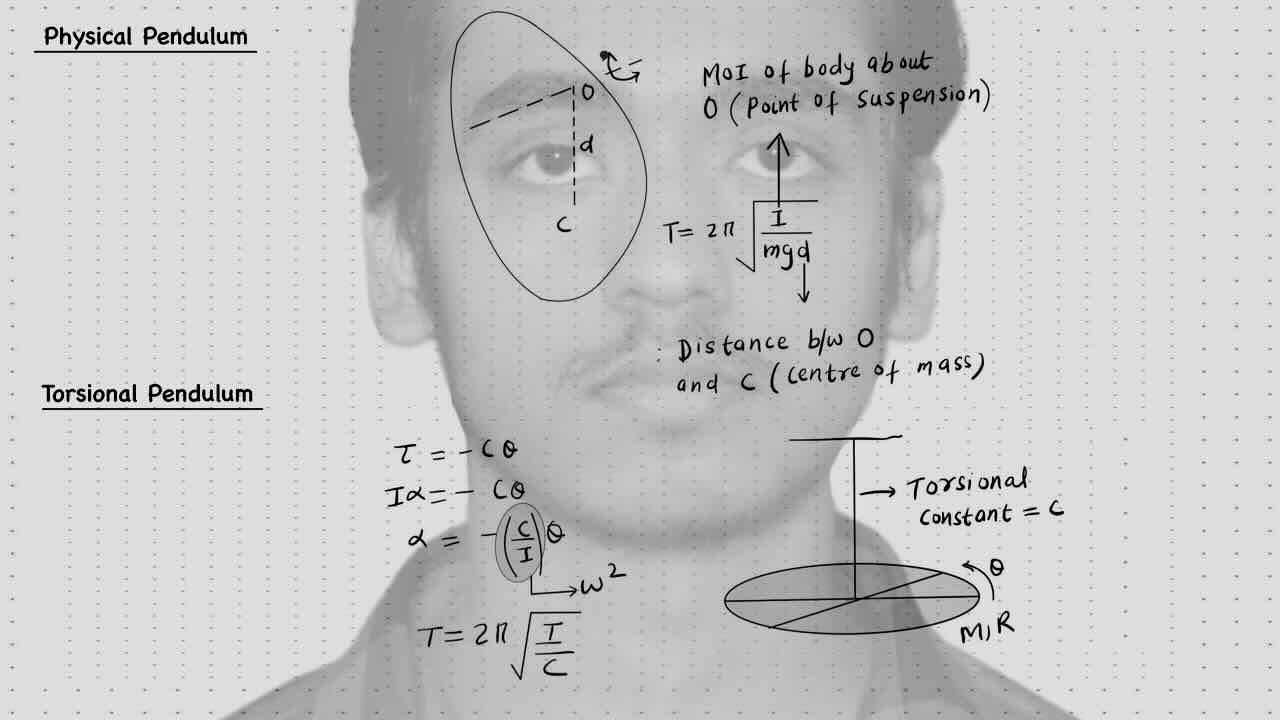 Physical Pendulum
O
d
C
MoI of body about
O (Point of suspension)
T = 2π √(I/mgd)
: Distance b/w O
and C (Centre of mass)
Torsional Pendulum
τ = - Cθ
Iα = - Cθ
α = -(C/I)θ
ω²
T = 2π √(I/C)
Torsional
Constant = C
θ
M, R